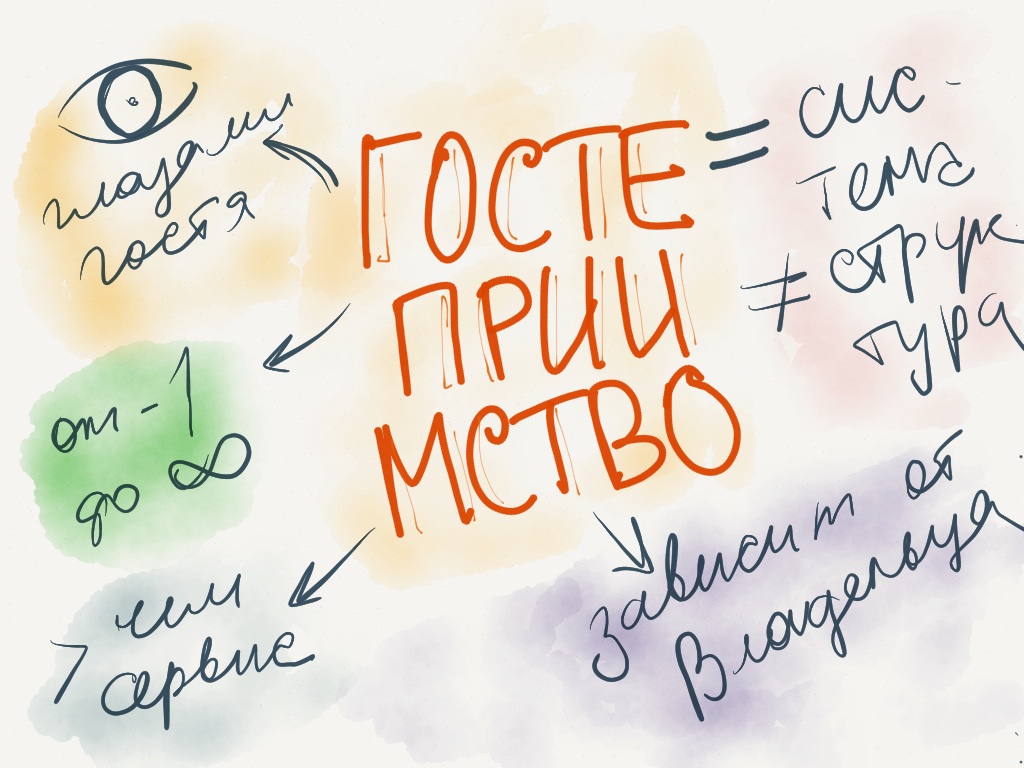 глазами
гостя
ГОСТЕ
ПРИИ
МСТВО
= сис-
тема
≠ струк
тура
от -1
до ∞
> чем
сервис
зависит от
Владельца